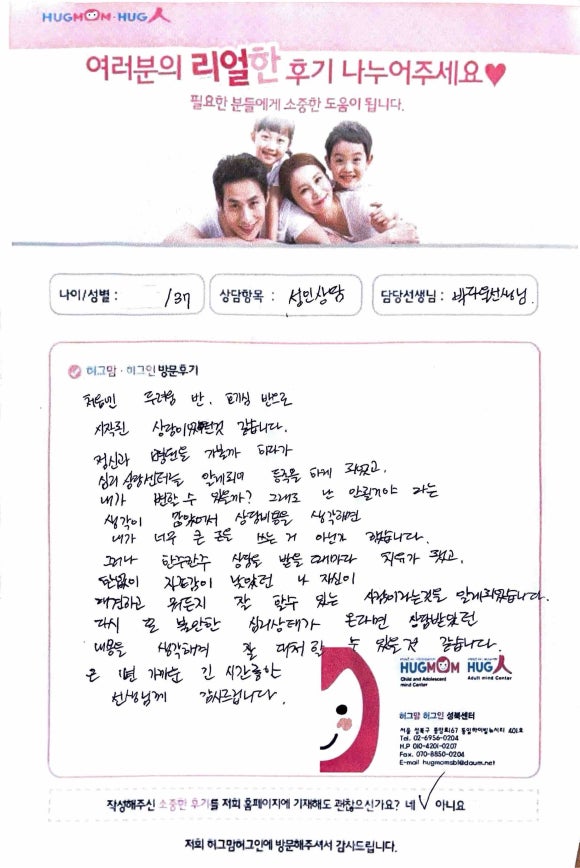 HUGMOM·HUG人
여러분의 리얼한 후기 나누어주세요♥
필요한 분들에게 소중한 도움이 됩니다.
나이/성별 : /37
상담항목 : 성인상담
담당선생님 : 박다운선생님.
허그맘·허그인 방문후기
처음엔 두려움 반, 호기심 반으로
시작한 상담이었던것 같습니다.
정신과 병원을 가볼까 하다가
심리 상담센터를 알게되어 등록을 하게 되었고,
내가 변할 수 있을까? 그래도 난 안될거야 라는
생각이 많아서 상담비용을 생각해면
내가 너무 큰 돈을 쓰는 거 아닌가 했습니다.
그러나 한주한주 상담을 받을때마다 치유가 됐고,
한없이 자존감이 낮았던 나 자신이
대견하고 뭐든지 잘 할수 있는 사람이라는것을 알게되었습니다.
다시 또 불안한 심리상태가 온다면 상담받았던
내용을 생각해서 잘 대처할 수 있을것 같습니다.
근 1년 가까운 긴 시간동안
선생님께 감사드립니다.
HUGMOM HUG人
Child and Adolescent mind Center Adult mind Center
허그맘 허그인 성북센터
서울 성북구 동소문로67 401호
Tel. 02-6956-0204
H.P 010-4201-0207
Fax. 070-8850-0204
E-mail hugmomsb1@daum.net
작성해주신 소중한 후기를 저희 홈페이지에 기재해도 괜찮으신가요? 네 ✓ 아니요
저희 허그맘허그인에 방문해주셔서 감사드립니다.